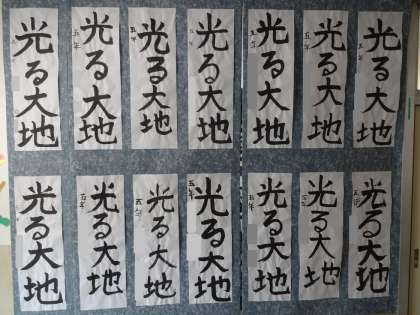 光る大地
光る大地
五年
光る大地
五年
光る大地
光る大地
五年
光る大地
五年
光る大地
五年
光る大地
光る大地
光る大地
五年
光る大地
五年
光る大地
五年
光る大地
五年
光る大地
五年
光る大地
五年